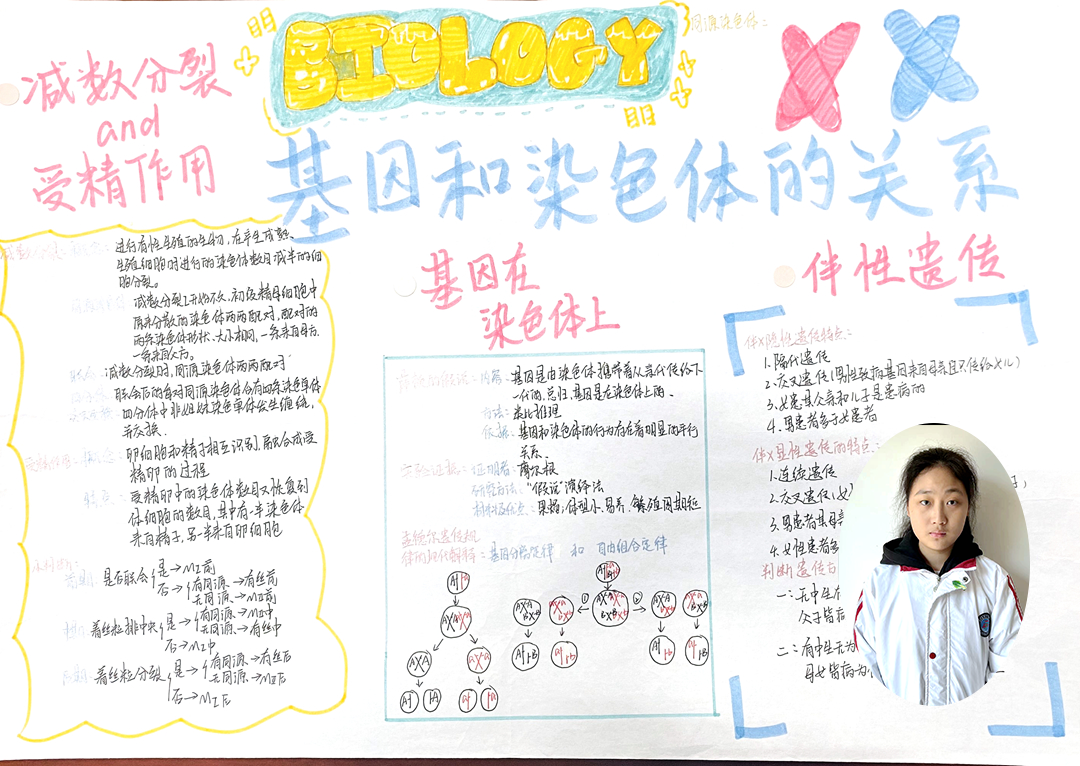 BIOLOGY
同源染色体:
基因和染色体的关系
减数分裂
and
受精作用
进行有性生殖的生物,在产生成熟
生殖细胞时进行的染色体数目减半的细
胞分裂。
减数分裂I开始不久,初级精母细胞中
原来分散的染色体两两配对,配对的
两条染色体形状、大小相同,一条来自母方
一条来自父方。
联会:减数分裂时,同源染色体两两配对
联会后的每对同源染色体含有四条染色单体
四分体中非姐妹染色单体发生缠绕,
并交换.
概念:卵细胞和精子相互识别、融合成受
精卵的过程
特点:受精卵中的染色体数目又恢复到
体细胞的数目,其中有一半染色体
来自精子,另一半来自卵细胞
前期:是否联会 是→MI前
否→ 有同源→有丝前
无同源→MII前
着丝粒排中央 是→ 有同源→有丝中
无同源→MII中
否→MI中
后期:着丝粒分裂 是→ 有同源→有丝后
无同源→MII后
否→MI后
基因在
染色体上
萨顿的假说:内容:基因是由染色体携带着从亲代传给下
一代的,总归,基因是在染色体上的.
方法:类比推理
依据:基因和染色体的行为存在着明显的平行
关系.
实验证据:证明者:摩尔根
研究方法:"假说"演绎法
果蝇:体型小、易养、繁殖周期短
孟德尔遗传规
律的现代解释:基因分离定律 和 自由组合定律
伴性遗传
伴X隐性遗传特点:
1.隔代遗传
2.交叉遗传(男性致病基因来自母亲且只传给女儿)
3.女患其父亲和儿子是患病的
4.男患者多于女患者
伴X显性遗传的特点:
1.连续遗传
2.交叉遗传(
3.男患者其母
4.女性患者多
判断遗传方
一:无中生有
父子皆病
二:有中生无为
母女皆病为